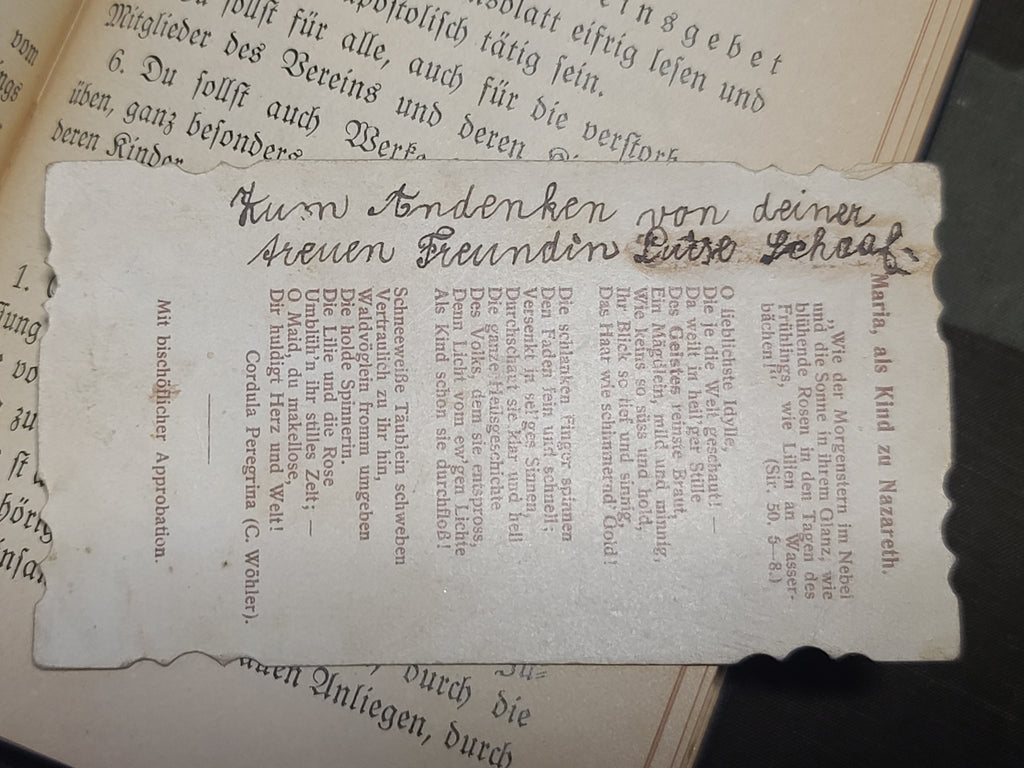 vom
ngs
insgebet
nsblatt eifrig lesen und
apostolisch tätig sein.
Du sollst für alle, auch für die verstorb
Mitglieder des Vereins und deren
6. Du sollst auch Werke
üben, ganz besonders
deren Kinder
Zum Andenken von deiner
treuen Freundin Luise Schaaf.
Maria, als Kind zu Nazareth.
„Wie der Morgenstern im Nebel
und die Sonne in ihrem Glanz, wie
blühende Rosen in den Tagen des
Frühlings, wie Lilien an Wasser-
bächen!“
(Sir. 50, 5—8.)
O lieblichste Idylle,
Die je die Welt geschaut! —
Da weilt in heil'ger Stille
Des Geistes reinste Braut,
Ein Mägdlein, mild und minnig,
Wie keins so süss und hold,
Ihr Blick so tief und sinnig,
Das Haar wie schimmernd Gold!
Die schlanken Finger spinnen
Den Faden fein und schnell;
Versenkt in sel'ges Sinnen,
Durchschaut sie klar und hell
Die ganze Heilsgeschichte
Des Volks, dem sie entspross,
Denn Licht vom ew'gen Lichte
Als Kind schon sie durchfloß!
Schneeweiße Täublein schweben
Vertraulich zu ihr hin,
Waldvöglein fromm umgeben
Die holde Spinnerin.
Die Lilie und die Rose
Umblüh'n ihr stilles Zelt; —
O Maid, du makellose,
Dir huldigt Herz und Welt!
Cordula Peregrina (C. Wöhler).
Mit bischöflicher Approbation.
1.
Jung
vo
zu
st
hörig
insa
allen Anliegen, durch
durch die